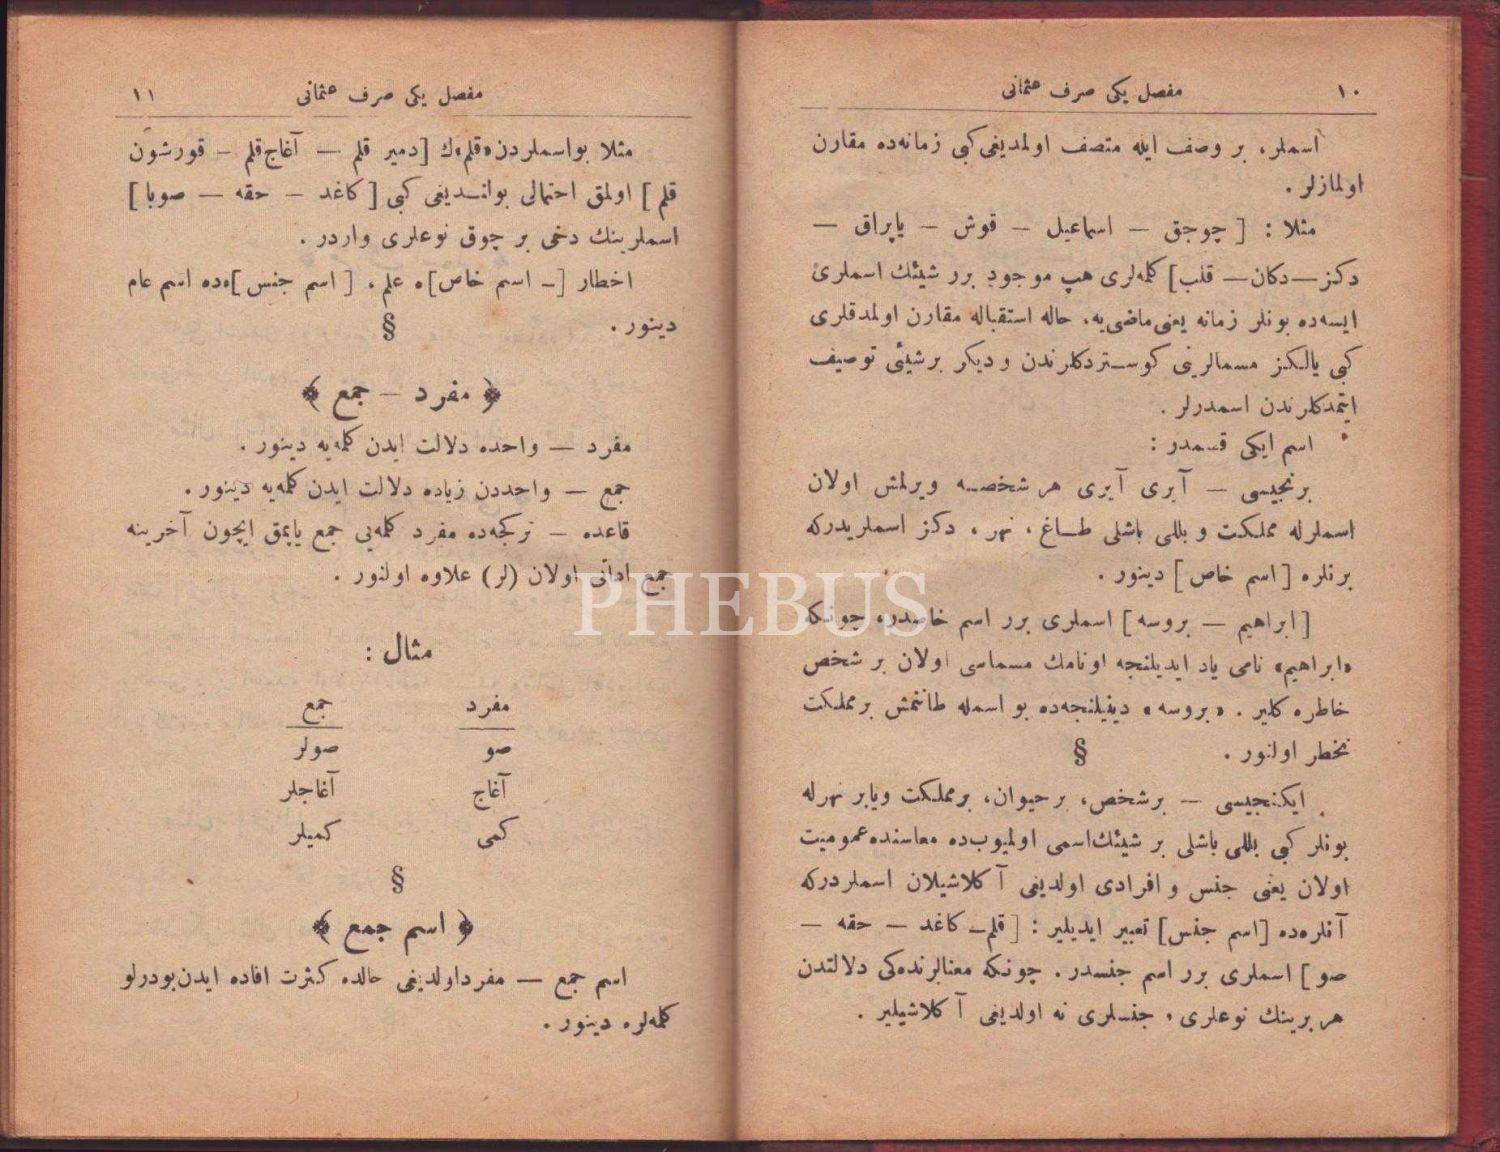 ١٠ مفصل یکی صرف عثمانی
اسملر، بر وصف ایله متصف اولمدیغی کبی زمانه‌ده مقارن
اولمازلر .
مثلا : [ چوجق — اسماعیل — قوش — یاپراق —
دکز — دکان — قلب ] کله‌لری هپ موجود برر شیئك اسملری
ایسه‌ده بونلر زمانه یعنی ماضی‌یه، حاله استقباله مقارن اولمدقلری
کبی یالکز مسمالرینی کوستردکلرندن و دیکر برشیئی توصیف
ایتمدکلرندن اسمدرلر .
اسم ایکی قسمدر :
برنجیسی — آیری آیری هر شخصه ویرلمش اولان
اسملرله مملکت و بللی باشلی طاغ ، نهر ، دکز اسملریدرکه
برنلره [ اسم خاص ] دینور .
[ ابراهیم — بروسه ] اسملری برر اسم خاصدر، چونکه
«ابراهیم» نامی یاد ایدیلنجه اونامك مسماسی اولان بر شخص
خاطره کلیر . «بروسه» دینیلنجه‌ده بو اسمله طانتمش برمملکت
تخطر اولنور . §
ایکنجیسی — برشخص، برحیوان، برمملکت ویابر نهرله
بونلر کبی بللی باشلی بر شیئك اسمی اولمیوب‌ده معناسنده عمومیت
اولان یعنی جنس و افرادی اولدیغی آکلاشیلان اسملردرکه
آنلره‌ده [ اسم جنس ] تعبیر ایدیلیر : [ قلم — کاغد — حقه —
صو ] اسملری برر اسم جنسدر . چونکه معنالرنده‌کی دلالتدن
هربرینك نوعلری ، جنسلری نه اولدیغی آکلاشیلیر .
مفصل یکی صرف عثمانی ١١
مثلا بواسملردن «قلم» ك [ دمیر قلم — آغاج قلم — قورشون
قلم ] اولمق احتمالی بولندیغی کبی [ کاغد — حقه — صوبا ]
اسملرینك دخی بر چوق نوعلری واردر .
اخطار [ — اسم خاص ] ه علم ، [ اسم جنس ] ه‌ده اسم عام
دینور . §
﴿ مفرد — جمع ﴾
مفرد — واحده دلالت ایدن کله‌یه دینور .
جمع — واحددن زیاده دلالت ایدن کله‌یه دینور .
قاعده — ترکجه‌ده مفرد کله‌یی جمع یاپمق ایچون آخرینه
جمع اداتی اولان (لر) علاوه اولنور .
مثال :
مفرد جمع
صو صولر
آغاج آغاجلر
کمی کمیلر
§
﴿ اسم جمع ﴾
اسم جمع — مفرد اولدیغی حالده کثرت افاده ایدن بودرلو
کله‌لره دینور .
PHEBUS